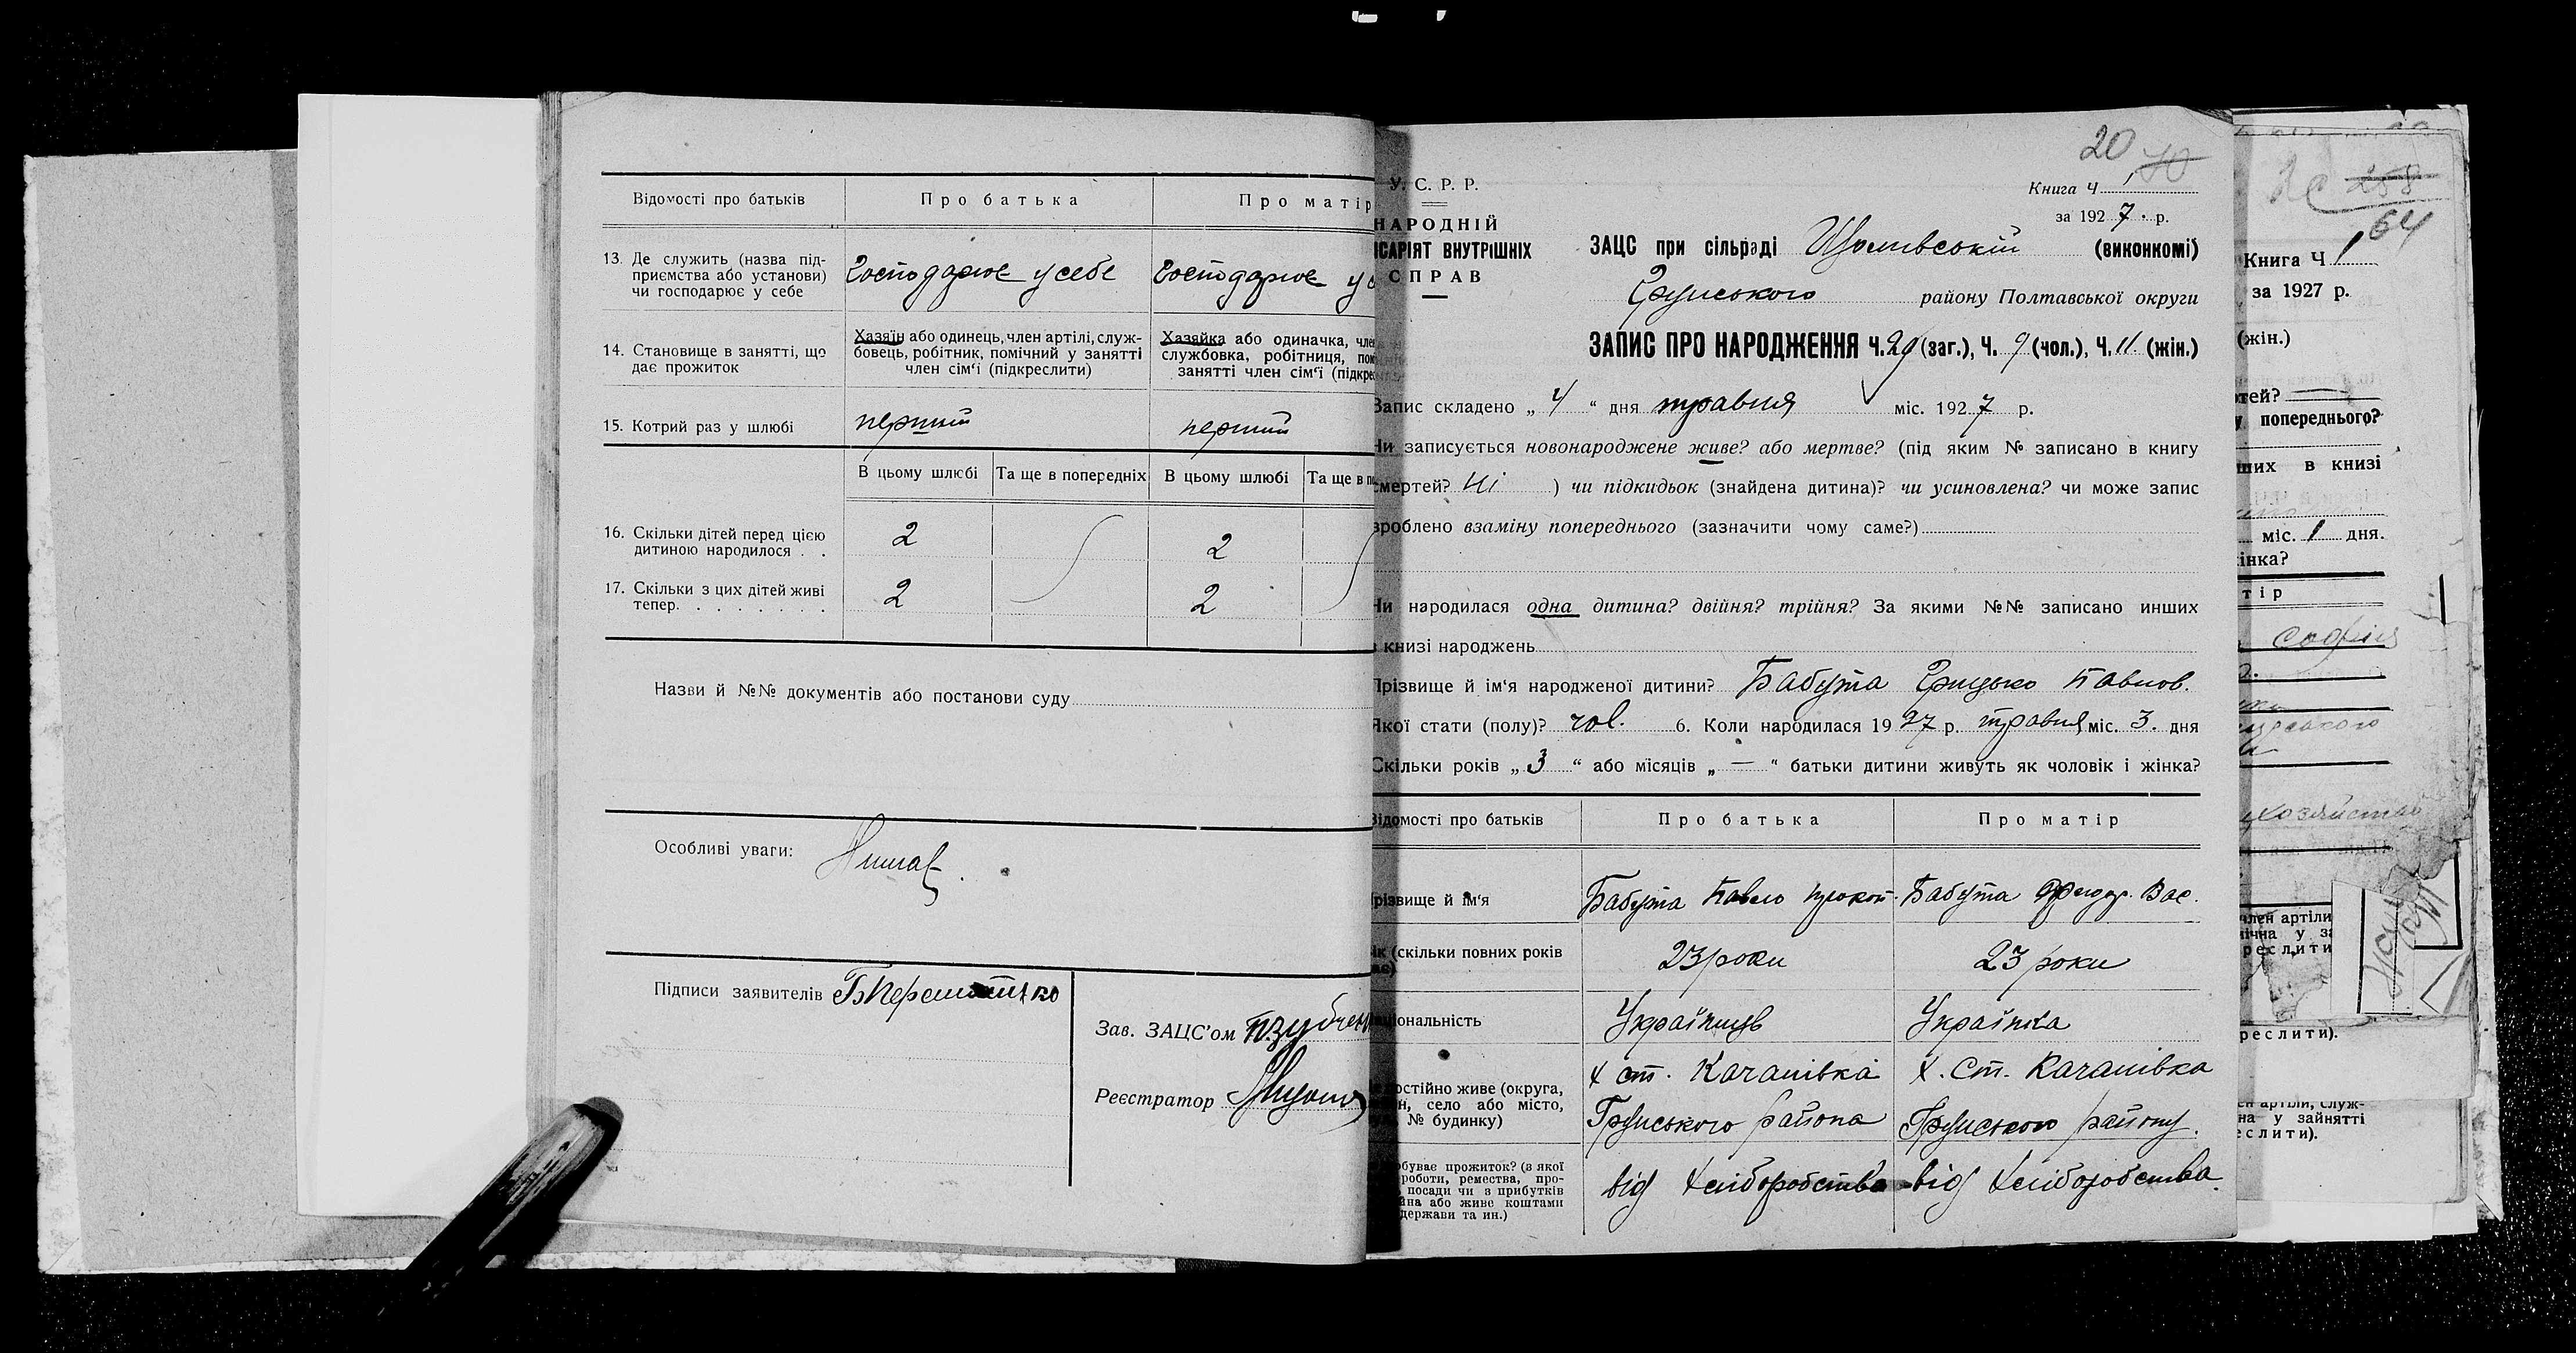 Відомості про батьків
Про батька
Про матір
13. Де служить (назва під-
приємства або установи)
чи господарює у себе
Господарює у себе
Господарює у с
14. Становище в занятті, що
дає прожиток
Хазяїн або одинець, член артілі, служ-
бовець, робітник, помічний у занятті
член сім'ї (підкреслити)
Хазяйка або одиначка, чле
службовка, робітниця, пом
занятті член сім'ї (підкре
15. Котрий раз у шлюбі
перший
перший
В цьому шлюбі
Та ще в попередніх
В цьому шлюбі
Та ще в по
16. Скільки дітей перед цією
дитиною народилося . .
2
2
17. Скільки з цих дітей живі
тепер. . . . . . . .
2
2
Назви й №№ документів або постанови суду
Особливі уваги:
Підписи заявителів
Зав. ЗАЦС'ом
Реєстратор
20 70
У. С. Р. Р.
НАРОДНІЙ
ІСАРІЯТ ВНУТРІШНІХ
СПРАВ
Книга Ч 1
за 1927. р.
ЗАЦС при сільраді (виконкомі)
Грунського району Полтавської округи
ЗАПИС ПРО НАРОДЖЕННЯ Ч. 20 (заг.), Ч. 9 (чол.), Ч. 11 (жін.)
Запис складено „ 4 “ дня травня міс. 1927 р.
Чи записується новонароджене живе? або мертве? (під яким № записано в книгу
смертей? Ні ) чи підкидьок (знайдена дитина)? чи усиновлена? чи може запис
зроблено взаміну попереднього (зазначити чому саме?)
Чи народилася одна дитина? двійня? трійня? За якими №№ записано инших
в книзі народжень
Прізвище й ім'я народженої дитини? Бабута Грицько Павлов.
Якої стати (полу)? чол. 6. Коли народилася 1927 р. травня міс. 3. дня
Скільки років „ 3 “ або місяців „ — “ батьки дитини живуть як чоловік і жінка?
Відомості про батьків
Про батька
Про матір
різвище й ім'я
Бабута Павло Прокоп.
Бабута Вас.
ік (скільки повних років
має)
23 роки
23 роки
ціональність
Українець
Українка
остійно живе (округа,
н, село або місто,
№ будинку)
х ст. Качанівка
Грунського района
х. ст. Качанівка
Грунського району.
буває прожиток? (з якої
роботи, ремества, про-
посади чи з прибутків
йна або живе коштами
держави та ин.)
від хліборобства
від хліборобства
258
64
Книга Ч 1
за 1927 р.
(жін.)
тей?
у попереднього?
ших в книзі
міс. 1 дня.
інка?
тір
Софія
член артілі
ічна у за
реслити
реслити).
ен артілі, служ-
на у зайнятті
еслити).